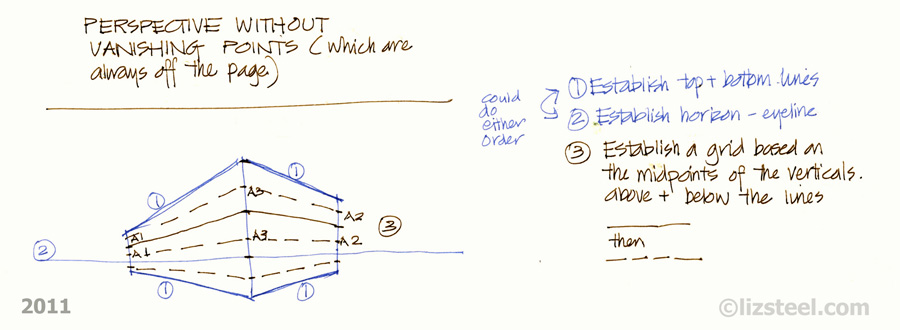 PERSPECTIVE WITHOUT
VANISHING POINTS (which are
always off the page)
could
do
either
order
① Establish top + bottom lines
② Establish horizon - eyeline
③ Establish a grid based on
the midpoints of the verticals.
above + below the lines
then
①
①
A3
A2
A1
A3
③
A2
A1
②
①
①
2011
©lizsteel.com